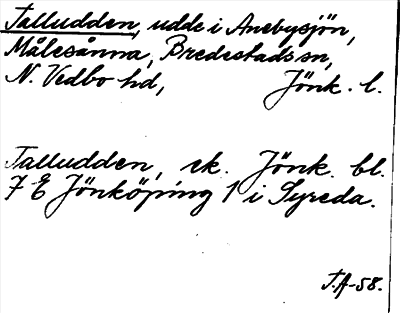 Talludden, udde i Anebysjön,
Målesånna, Bredestads sn,
N. Vedbo hd, Jönk. l.
Talludden, ek. Jönk. bl.
7 E Jönköping 1 i Syreda.
T.A-58.